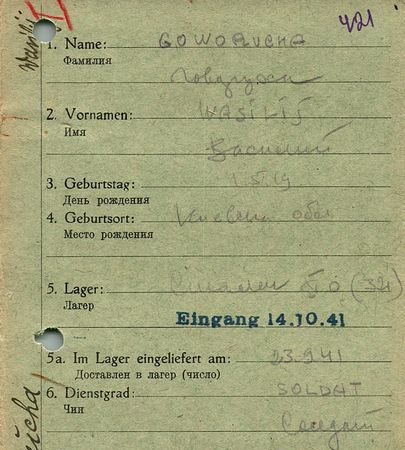 421
1. Name: GOWORUCHA
Фамилия
Говоруха
2. Vornamen: WASILIJ
Имя
Василий
3. Geburtstag:
День рождения
4. Geburtsort: Киевска обл
Место рождения
5. Lager: (321)
Лагер
Eingang 14.10.41
5a. Im Lager eingeliefert am: 23.9.41
Доставлен в лагер (число)
6. Dienstgrad: SOLDAT
Чин